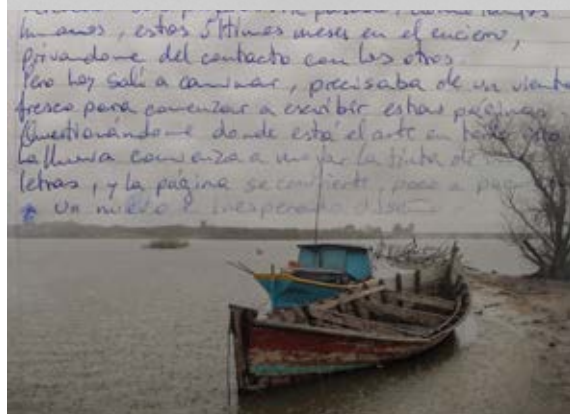 humanos, estos últimos meses en el encierro,
privandome del contacto con los otros.
Pero hoy salí a caminar, precisaba de un viento
fresco para comenzar a escribir estas páginas
Cuestionándome donde está el arte en todo esto
La lluvia comienza a mojar la tinta de
letras, y la página se convierte, poco a poco
un nuevo e inesperado diseño